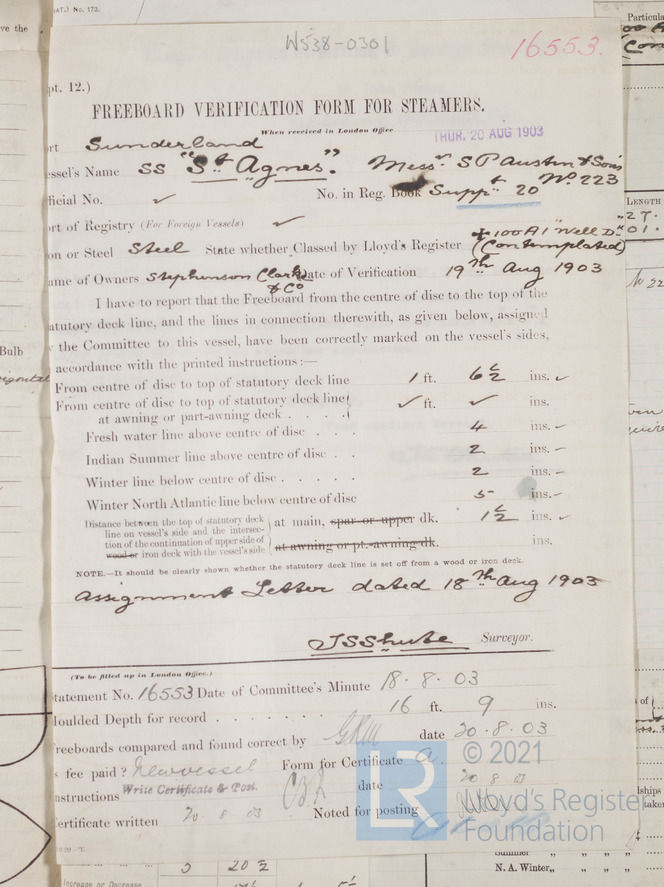 AT.) No. 173.
ve the
W538-0301
16553.
pt. 12.)
FREEBOARD VERIFICATION FORM FOR STEAMERS.
When received in London Office
THUR. 20 AUG 1903
rt Sunderland
essel's Name SS "St Agnes". Messrs S P Austin & Sons
No 223
ficial No. ✓ No. in Reg. Book Suppt 20
rt of Registry (For Foreign Vessels) ✓
on or Steel Steel State whether Classed by Lloyd's Register ✠100A1 "Well Dk
(Contemplated)
ame of Owners Stephenson Clark & Co Date of Verification 19th Aug 1903
I have to report that the Freeboard from the centre of disc to the top of the
atutory deck line, and the lines in connection therewith, as given below, assigned
the Committee to this vessel, have been correctly marked on the vessel's sides,
accordance with the printed instructions:—
From centre of disc to top of statutory deck line 1 ft. 6½ ins. ✓
From centre of disc to top of statutory deck line
at awning or part-awning deck . . . . ✓ ft. ✓ ins.
Fresh water line above centre of disc . . . 4 ins.
Indian Summer line above centre of disc . . 2 ins.
Winter line below centre of disc . . . . . 2 ins.
Winter North Atlantic line below centre of disc 5 ins.
Distance between the top of statutory deck
line on vessel's side and the intersec-
tion of the continuation of upper side of
wood or iron deck with the vessel's side
at main, spar or upper dk. 1½ ins. ✓
at awning or pt.-awning dk. ins.
NOTE.—It should be clearly shown whether the statutory deck line is set off from a wood or iron deck.
Assignment Letter dated 18th Aug 1903
J S Shute Surveyor.
(To be filled up in London Office.)
tatement No. 16553 Date of Committee's Minute 18.8.03
oulded Depth for record . . . . . . . 16 ft. 9 ins.
reeboards compared and found correct by date 20.8.03
s fee paid? New vessel Form for Certificate a.
nstructions Write Certificate & Post. date 20 8 03
ertificate written 20 8 03 Noted for posting
LR
© 2021
Lloyd's Register
Foundation
Particula
LENGTH
27.
01.
Bulb
Summer
N. A. Winter,,
20½
Increase or Decrease